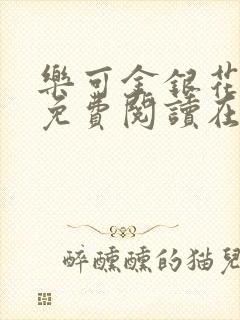 樂可金銀花
免費閱讀在
醉醺醺的猫兒